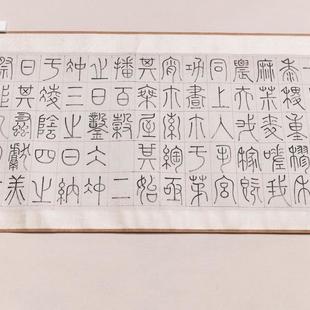 黍稷重穋禾
麻菽麥嗟我
農夫我稼既
同上入執宮
功晝爾于茅
宵爾索綯亟
其乘屋其始
播百穀二
之日鑿冰沖
沖三之日納
于凌陰四之
日其蚤獻羔
祭韭